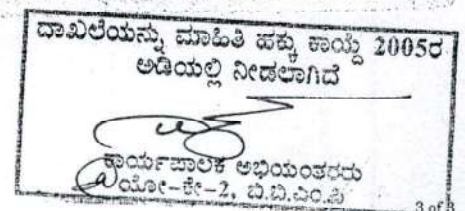 ದಾಖಲೆಯನ್ನು ಮಾಹಿತಿ ಹಕ್ಕು ಕಾಯ್ದೆ 2005ರ
ಅಡಿಯಲ್ಲಿ ನೀಡಲಾಗಿದೆ
ಕಾರ್ಯಪಾಲಕ ಅಭಿಯಂತರರು
ಯೋ-ಕೇ-2, ಬಿ.ಬಿ.ಎಂ.ಪಿ
3 of 3